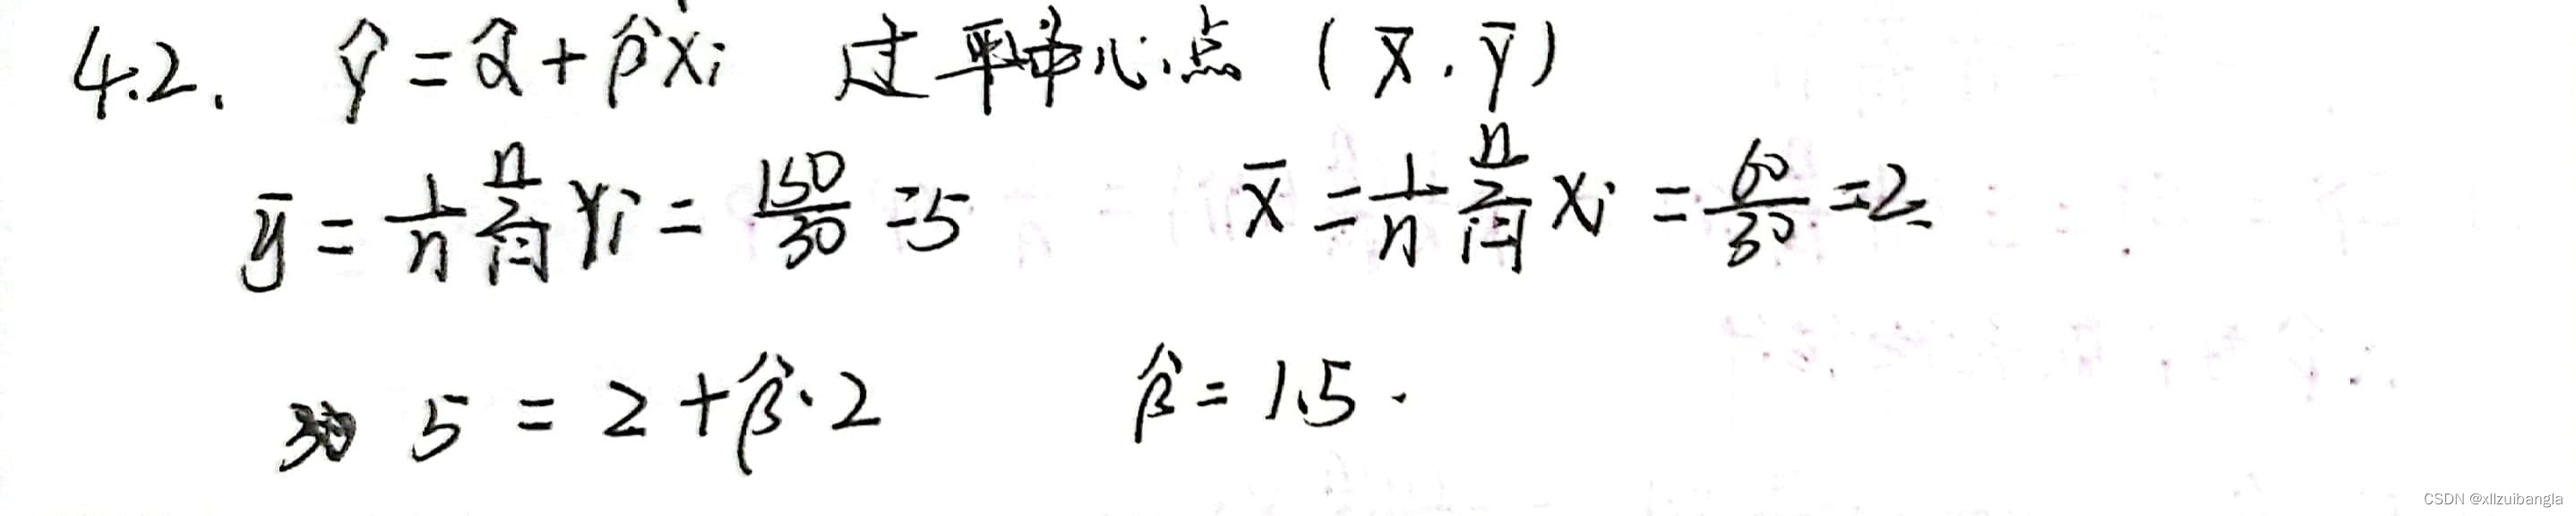 4.2. ŷ = α̂ + β̂xᵢ 过平均中心点 (x̄, ȳ)
ȳ = 1/n ∑ⁿᵢ₌₁ yᵢ = 150/30 = 5 x̄ = 1/n ∑ⁿᵢ₌₁ xᵢ = 60/30 = 2
5 = 2 + β̂·2 β̂ = 1.5.
CSDN @xllzuibangla